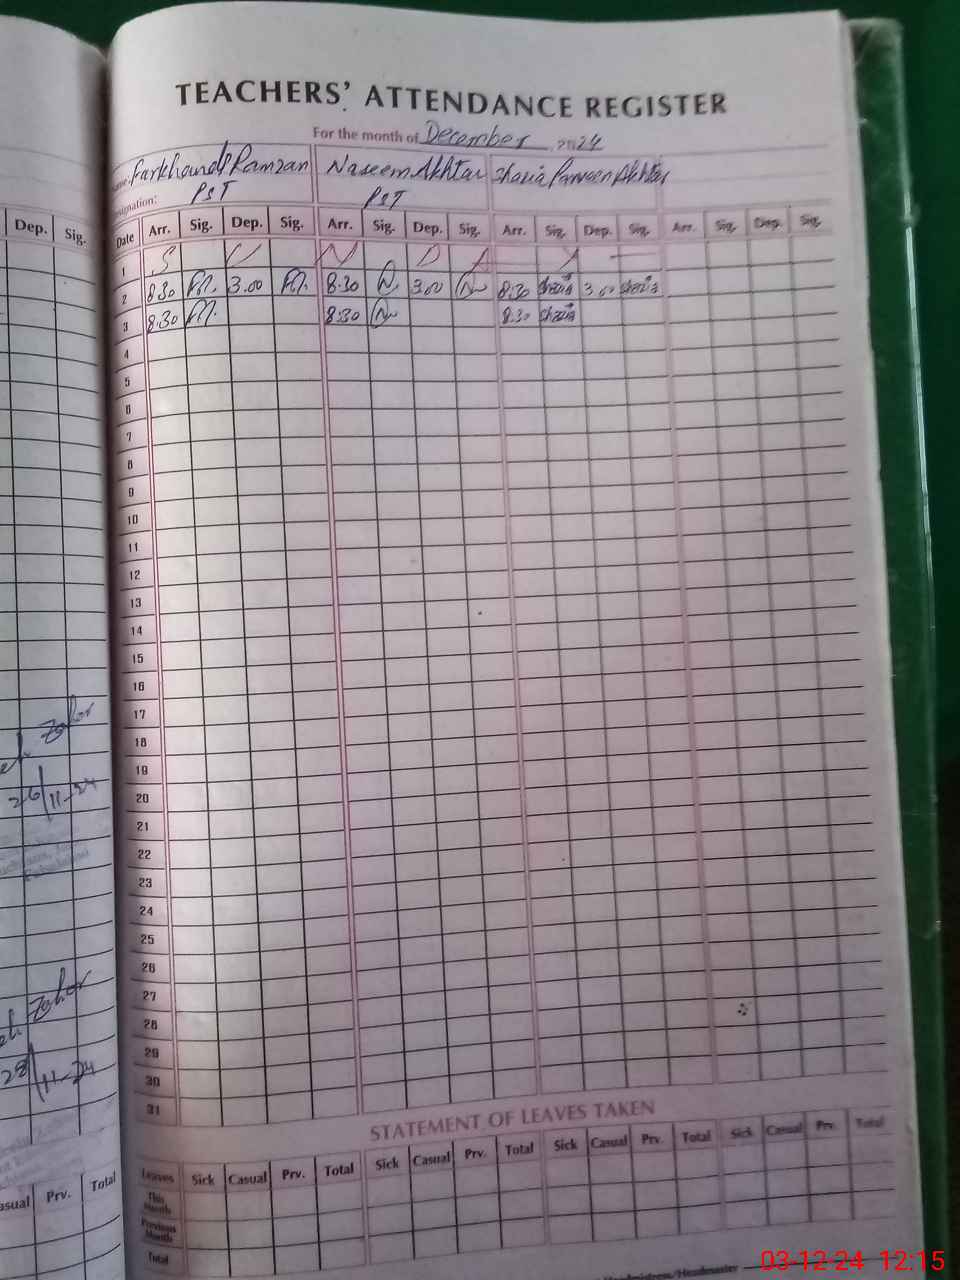 TEACHERS' ATTENDANCE REGISTER
For the month of December, 2024
Name: Farkhanda Ramzan Naseem Akhtar Shazia Parveen Akhtar
Designation: PST PST
Dep. Sig. Date Arr. Sig. Dep. Sig. Arr. Sig. Dep. Sig. Arr. Sig. Dep. Sig. Arr. Sig. Dep. Sig.
1 S U N D A Y
2 8:30 3.00 8:30 3.00 8:30 Shazia 3.00 Shazia
3 8:30 8:30 8:30 Shazia
4
5
6
7
8
9
10
11
12
13
14
15
16
17
18
19
20
21
22
23
24
25
26
27
28
29
30
31
26/11-24
28/11-24
STATEMENT OF LEAVES TAKEN
Leaves Sick Casual Prv. Total Sick Casual Prv. Total Sick Casual Prv. Total Sick Casual Prv. Total
This Month
Previous Month
Total
asual Prv. Total
Headmistress/Headmaster
03-12-24 12:15